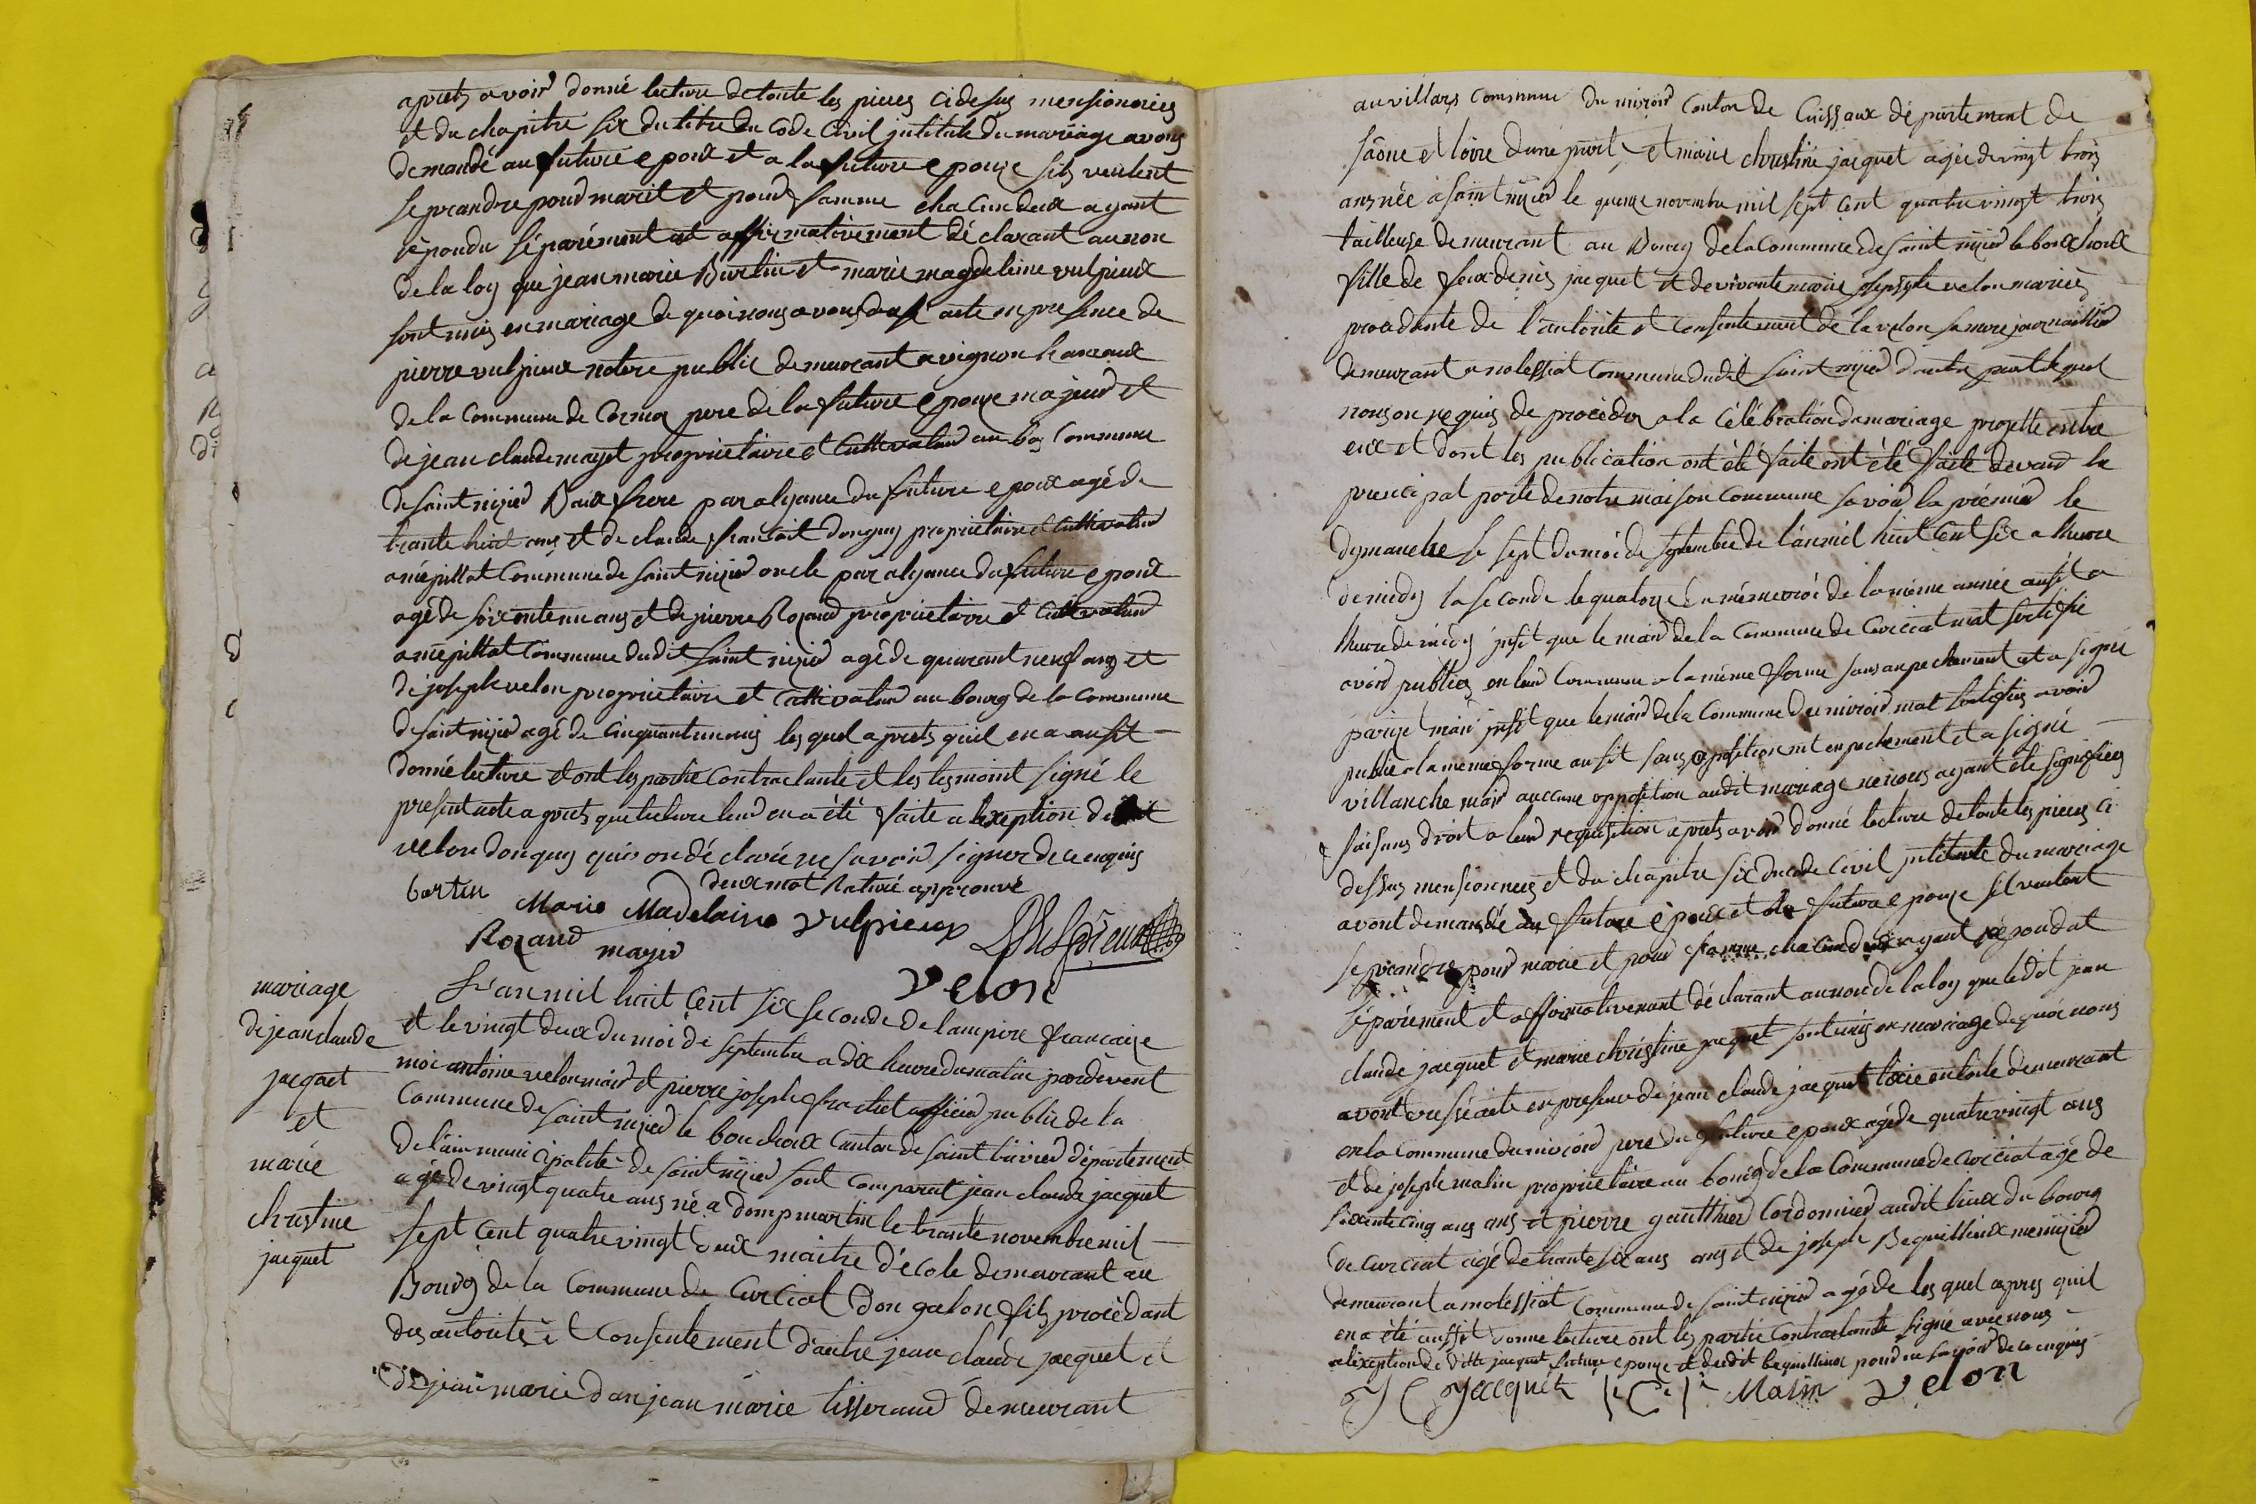 apret avoir donné lecture de toute les pieces ci desus mensionnées
et du chapitre six du titre du code civil intitulé du mariage avons
demandé au future epoux et a la future epouze sils veulent
se prandre pour marit et pour famme chacun deux ayant
répondu séparément et affirmativement déclarant au non
de la loy que jean marie Burtin et marie magdeleine vulpieux
sont unis en mariage de quoi nous avons acte en presence de
pierre vulpieux notere public demeurant a vignon hameaux
de la commune de Cormoz pere de la future épouze majeur et
de jean claude mayet propriétaire et cultivateur au bos commune
de saint nizier Baux frere par alyance du future epoux agé de
trante huit ans et de claude francoit donguy propriétaire et cultivateur
a mepillat commune de saint nizier oncle par alyance du future epoux
agé de soixante un ans et de pierre Rozand proprietaire et cultivateur
a mepillat commune dudit saint nizier agé de quarant neuf ans et
de joseph velon proprietaire et cultivateur au bourg de la commune
de saint nizier agé de cinquant un ans les quel aprets quil en a ausit
donné lecture et ont les partie contractante et les tesmoint signé le
present acte a prets que lecture leur en a été faite a lexeption
velon donguy qui on déclaré ne savoir signer de ce enquis
deux mot raturé approuvé
burtin Marie Madelaine Vulpieux
Rozand mayet Vulpieux
velon
mariage
de jean claude
jacquet
et
marie
christine
jacquet
L'an mil huit cent six seconde de lampire francaize
et le vingt deux du moi de septembre a dix heure du matin pardevent
moi antoine velon mair et pierre joseph frachet officier public de la
commune de saint nizier le bouchoux canton de saint trivier département
de l'ain municipalité de saint nizier sont comparut jean claude jacquet
agé de vingt quatre ans né a dompmartin le trante novembre mil
sept cent quatre vingt deux maitre d'école demeurant au
Bourg de la commune de Curciat dongalon fils procédant
des autorité et consentement d'autre jean claude jacquet et
de jean marie danjean marie tisserand demeurant
au villars commune du miroir canton de Cuissaux département de
Sâone et loire dune part, et marie christine jacquet agée de vingt trois
ans née a saint nizier le quinze novembre mil sept cent quatre vingt trois
tailleuse demeurant au Bourg de la commune de saint nizier le bouchoux
fille de feux denis jacquet et de vivante marie josephte velon mariés
procédante de l'autorité et consentement de la velon sa mere journaillier
demeurant a molessiat commune dudit saint nizier d'autre part lequel
nous on requis de procéder a la célébration du mariage projetté entre
eux et dont les publication ont été faite ont été faite devant la
principal porte de notre maison commune savoir la prémier le
dymanche le sept du moi de septembre de l'an mil huit cent six a lheure
de midy la seconde le quatorze du méme moi de la méme année ausit a
lheure de midy insit que le mair de la commune de Curciat mat sertifié
avoir publiez en leur commune a la méme forme sans anpechement et a signé
parize mair insit que le mair de la commune du miroir mat sertifié avoir
publié a la meme forme ausit sans oposition nit enpechement et a signé
villanche mair auccune opposition audit mariage ne nous ayant été signifiées
faisans droit a leur requisition aprets avoir donné lecture de toute les pieces ci
dessus mensionnées et du chapitre six du code civil intitulé du mariage
avont demandé au future époux et a la future epouze sil veulent
se prandre pour marie et pour famme chacun deux ayant répondut
séparément et affirmativement déclarant au non de la loy que ledit jean
claude jacquet et marie christine jacquet sont unis en mariage de quoi nous
avont dressé acte en presence de jean claude jacquet demeurant
en la commune du miroird pere du future epoux agé de quatre vingt ans
et de joseph malin propriétaire au bourg de la commune de Curciat agé de
soixante cinq ans ans et pierre gautthier cordonnier audit lieux du bourg
de Curciat agé de trante six ans ans et de joseph Bequillieux menuzier
demeurant a molessiat commune de saint nizier agé de les quel apres quil
en a été ausit donné lecture ont les partie contractante signé avec nous
a lexeption de ditte jacquet future epouze et dudit bequillieux pour ne savoir de ce enquis
J C Jacquet Malin velon